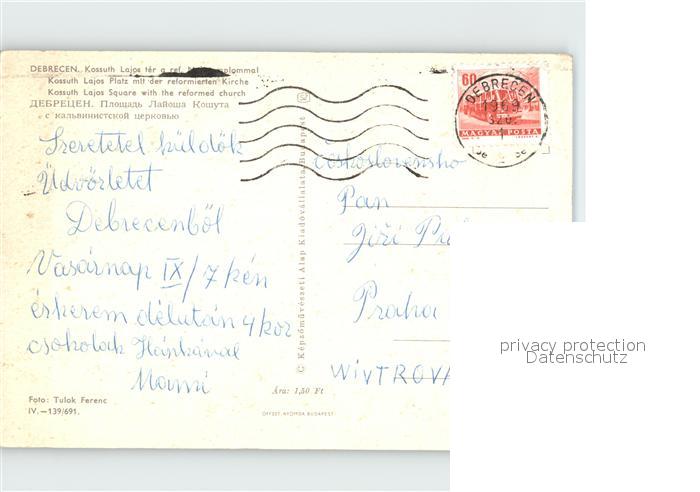 DEBRECEN. Kossuth Lajos tér a ref. templommal
Kossuth Lajos Platz mit der reformierten Kirche
Kossuth Lajos Square with the reformed church
ДЕБРЕЦЕН. Площадь Лайоша Кошута
с кальвинистской церковью
60
MAGYAR POSTA
DEBRECEN
1969
Szeretetel küldök
Üdvözletet
Debrecenből
Vasárnap IX/7 kén
érkerem délután 4 kor
csokolak Hánkával
Mami
Foto: Tulok Ferenc
IV.—139/691.
© Képzőművészeti Alap Kiadóvállalata, Budapest
Československo
Pan
Jiří
Praha
Ára: 1,50 Ft
OFFSET NYOMDA BUDAPEST
privacy protection
Datenschutz